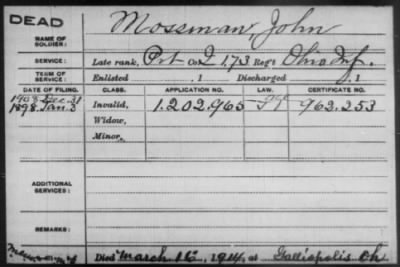 DEAD
NAME OF SOLDIER: Mossman, John
SERVICE: Late rank, Pvt Co. I, 173 Reg't Ohio Inf.
TERM OF SERVICE: Enlisted , 1 Discharged , 1
DATE OF FILING. CLASS. APPLICATION NO. LAW. CERTIFICATE NO.
1908 Dec. 31
1898 Jan. 3 Invalid, 1.202.965 962.253
Widow,
Minor,
ADDITIONAL SERVICES:
REMARKS:
Died March 16, 1914, at Galliopolis Oh